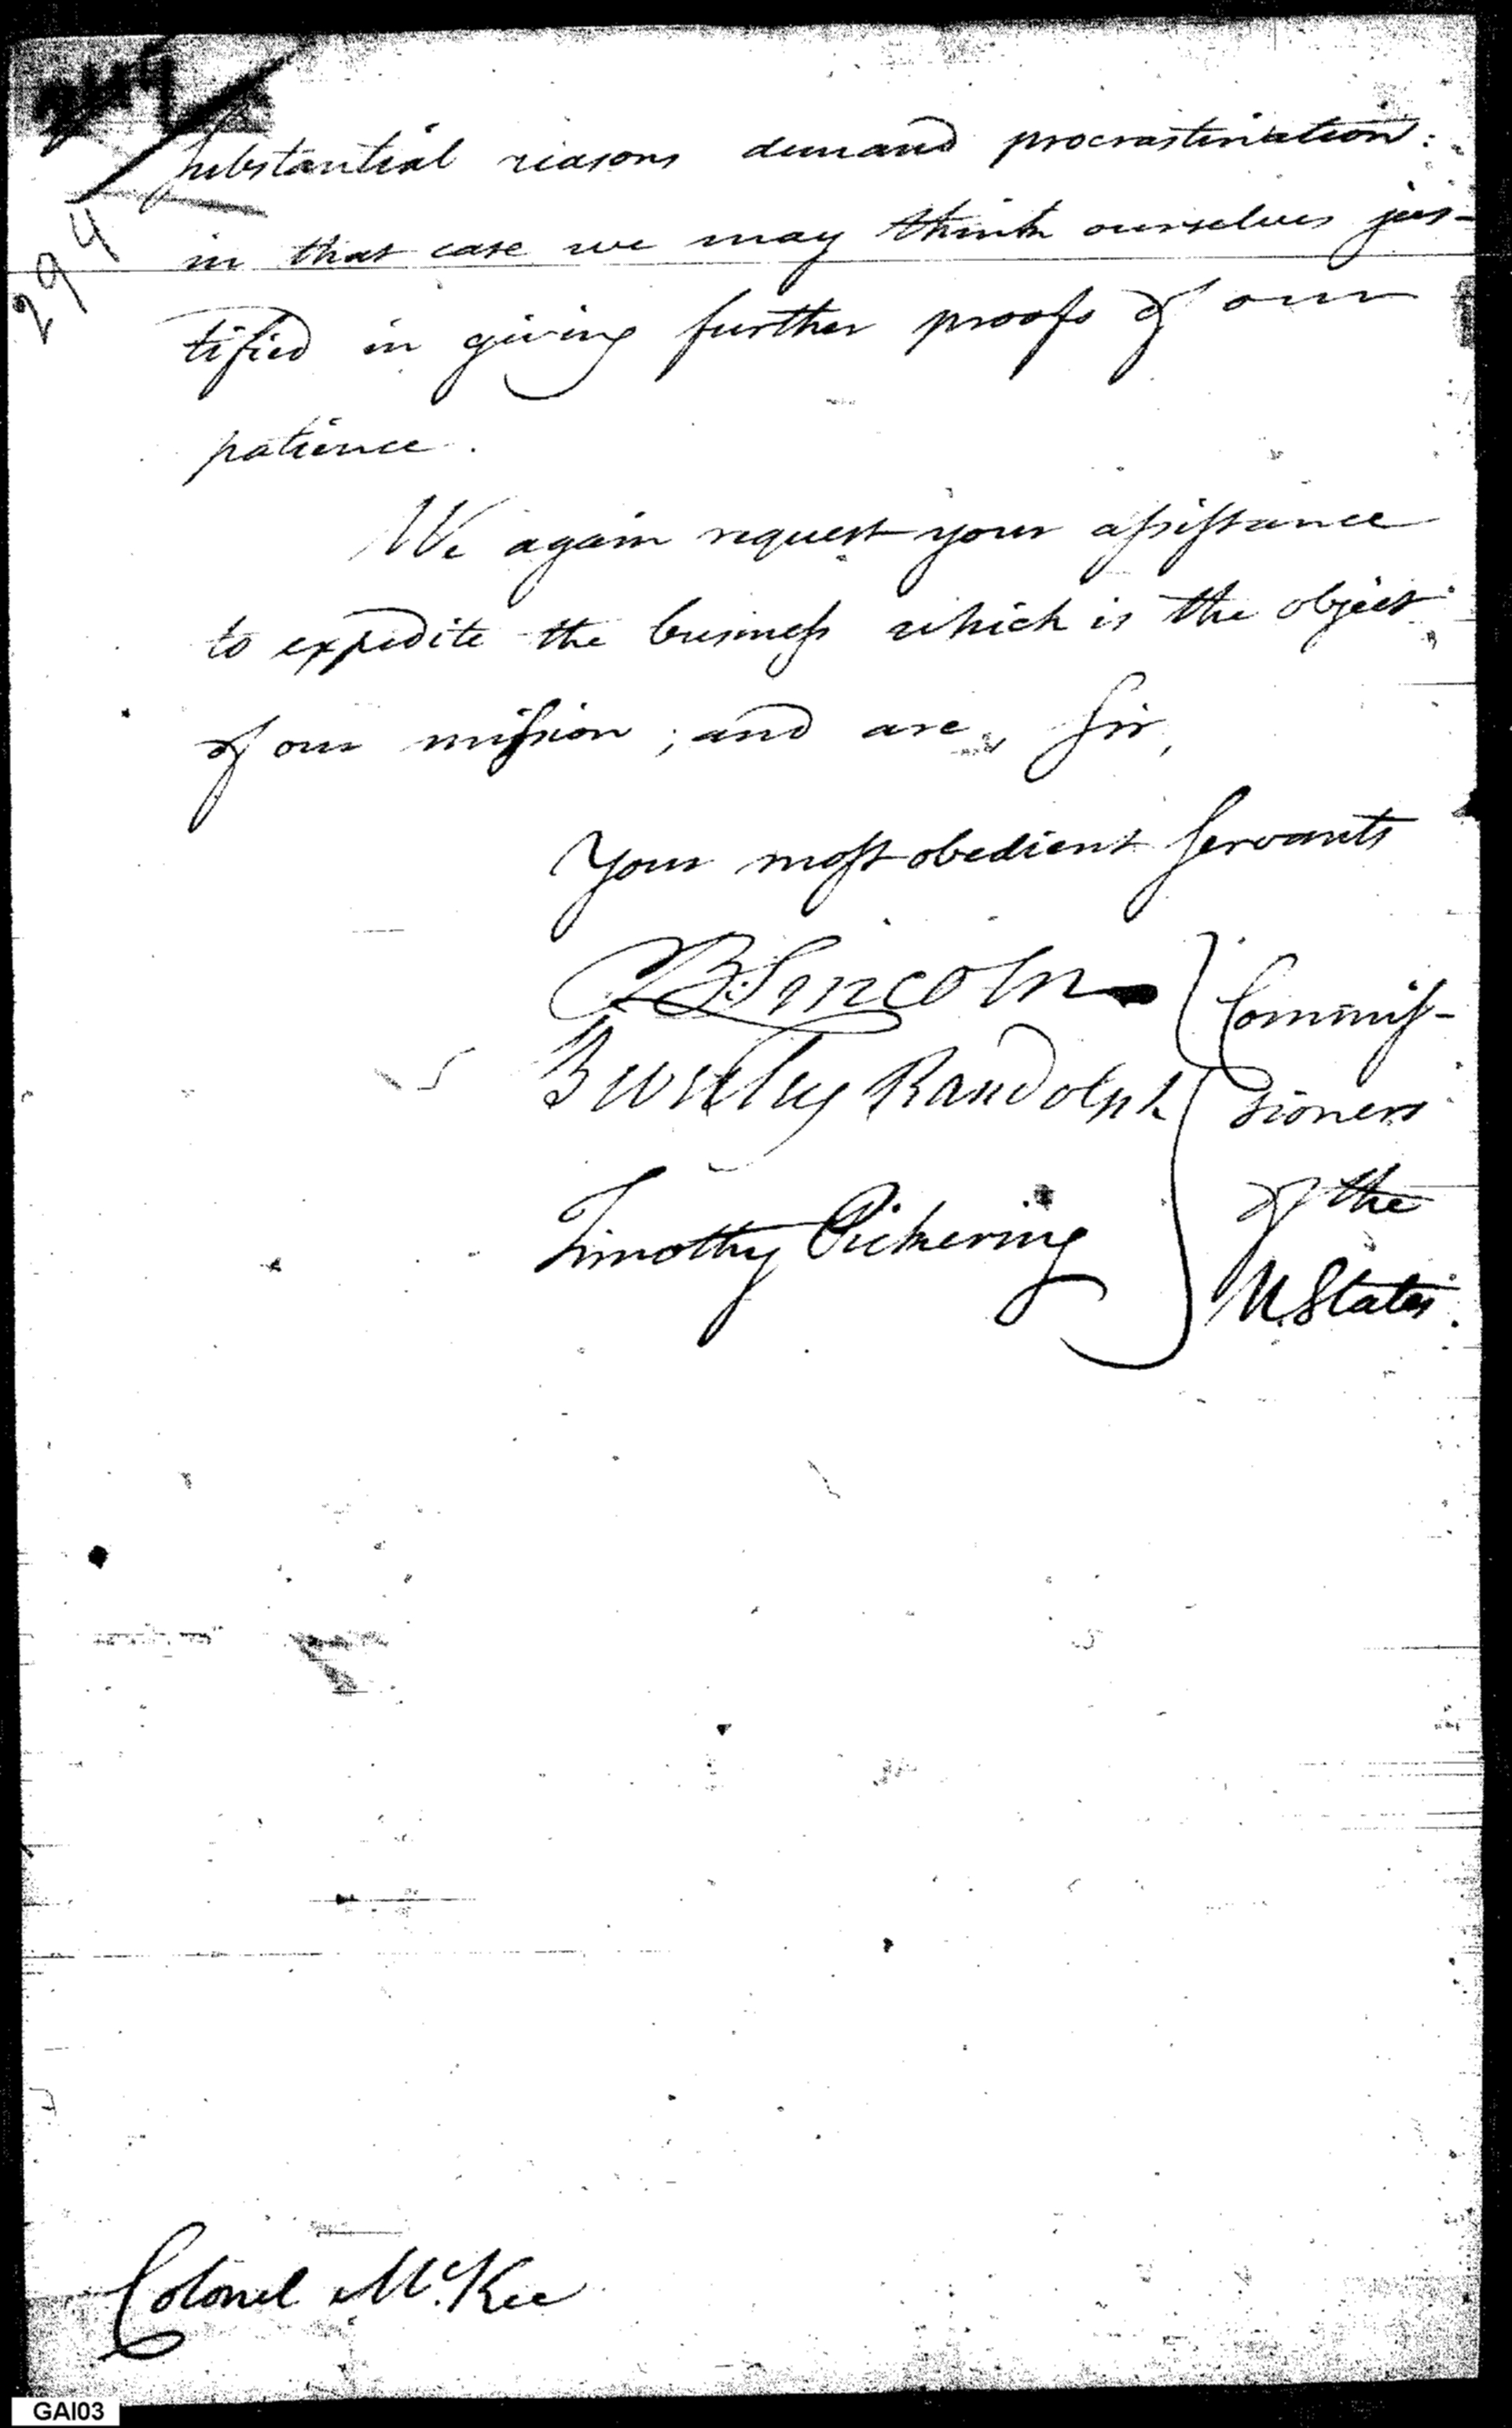 244
294
Substantial reasons demand procrastination:
in that case we may think ourselves jus-
tified in giving further proofs of our
patience.
We again request your assistance
to expedite the business which is the object
of our mission; and are, Sir,
Your most obedient Servants
B. Lincoln
Beverley Randolph
Timothy Pickering
Commis-
sioners
of the
U. States.
Colonel McKee
GAI03